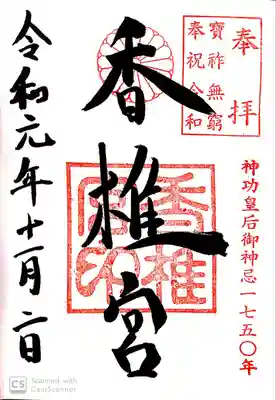 奉拝
寶祚無窮
奉祝令和
神功皇后御神忌一七五〇年
香椎宮
香椎宮印
令和元年十一月二日
CS Scanned with
CamScanner